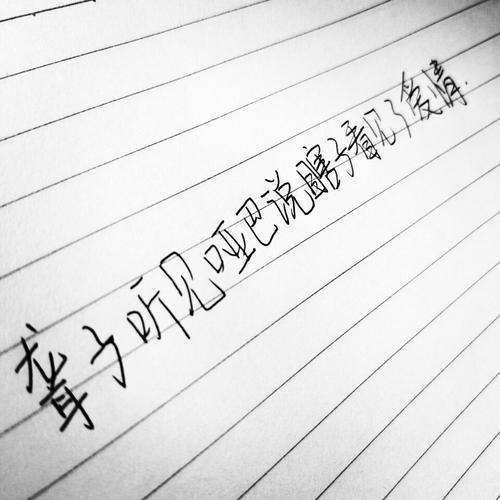 聋子听见哑巴说瞎子看见了爱情.